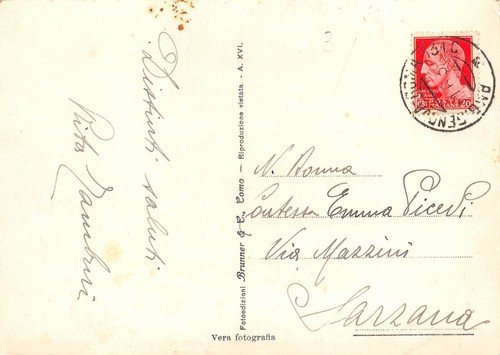 Distinti saluti
N. Donna
Contessa Emma Picedi
Via Mazzini
Sarzana
Fotoedizioni Brunner & C. Como - Riproduzione vietata - A. XVI.
Vera fotografia